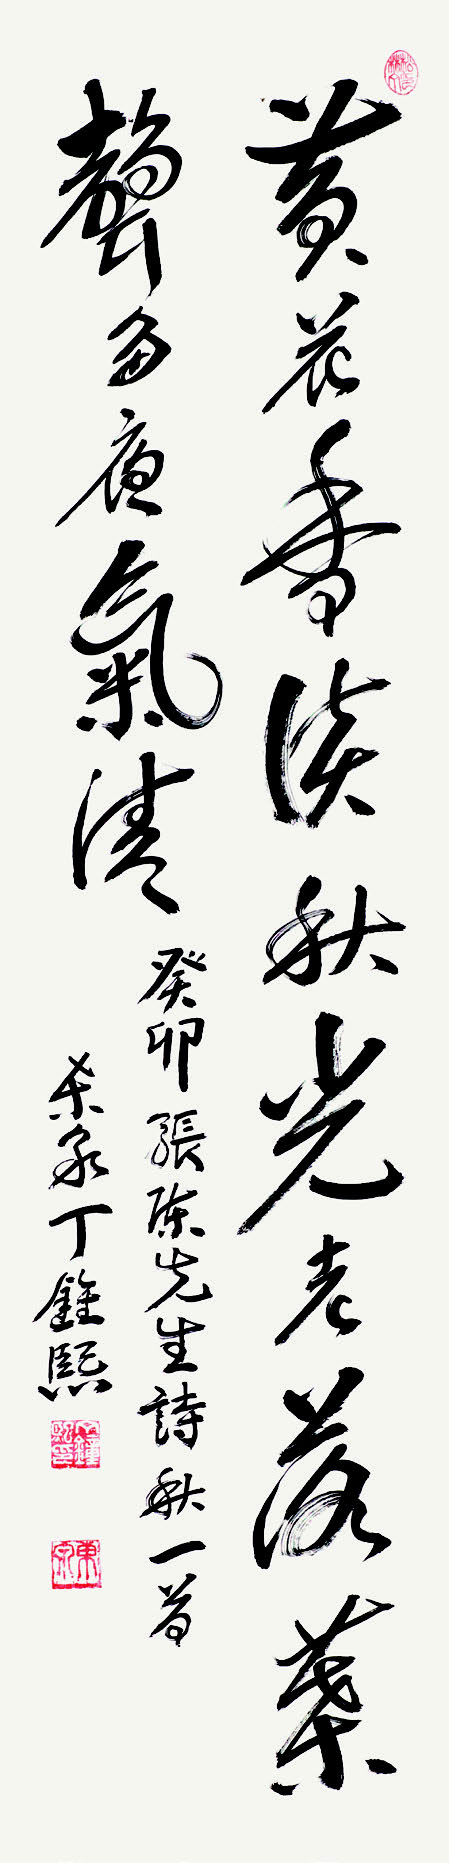 黃花香淡秋光老落葉
聲多夜氣清
癸卯張先生詩秋一首
泉丁鍾熙